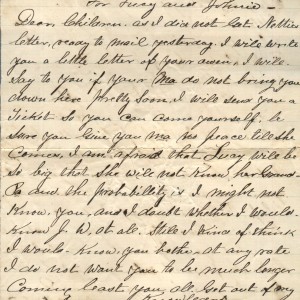 For Lucy and Johnie –
Dear Children. as I did not Get Netties
letter, ready to mail yesterday, I will write
you a little letter of your own, I will
say to you if your Ma do not bring you
down here Pretty Soon, I will send you a
Ticket So you can Come yourself, be
sure you Give your Ma no peace till she
Comes, I am afraid that Lucy will be
so big that she will not Know her Grand-
Pa and the probability is I might not
Know you, and I doubt whether I would
Know J. W. at all. Still I kind of think
I would Know you both, at any rate
I do not want you to be much longer
Coming least you all Got out of my